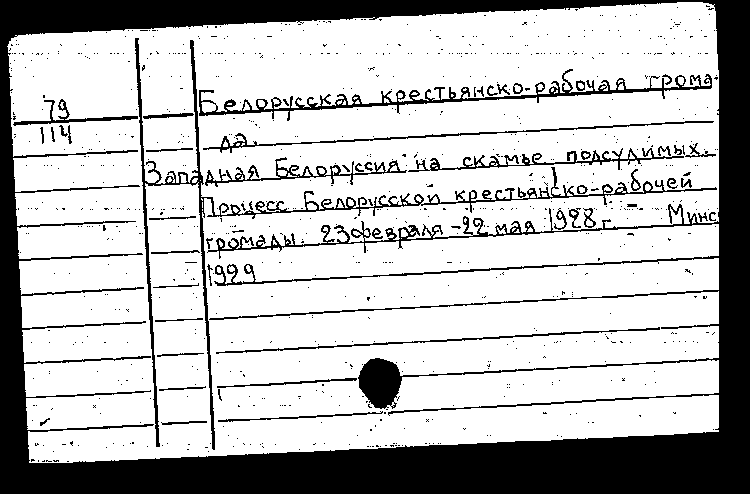 79
114
Белорусская крестьянско-рабочая грома-
да.
Западная Белоруссия на скамье подсудимых.
Процесс Белорусской крестьянско-рабочей
громады. 23 февраля - 22 мая 1928 г. - Минс
1929